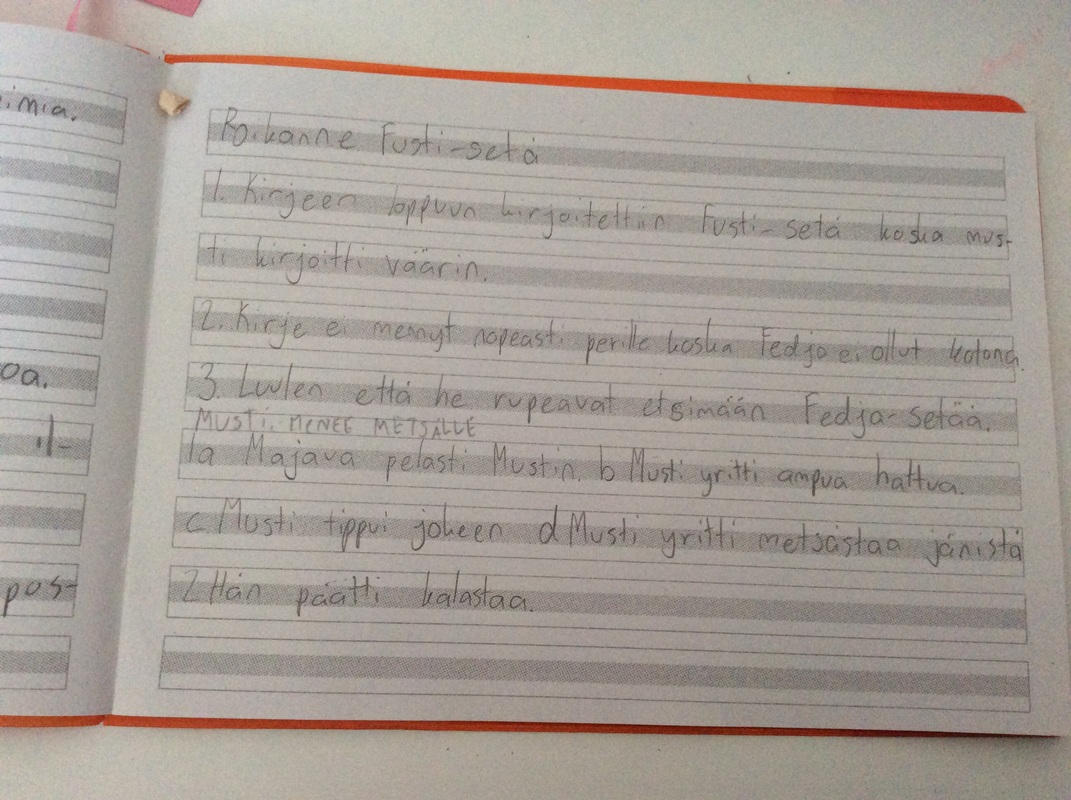 eimia.
oa.
il-
pos-
Poikanne Fusti-setä
1. Kirjeen loppuun kirjoitettiin Fusti-setä koska mus-
ti kirjoitti väärin.
2. Kirje ei mennyt nopeasti perille koska Fedja ei ollut kotona.
3. Luulen että he rupeavat etsimään Fedja-setää.
MUSTI MENEE METSÄLLE
1a Majava pelasti Mustin. b Musti yritti ampua hattua.
c Musti tippui jokeen d Musti yritti metsästaa jänistä
2 Hän päätti kalastaa.